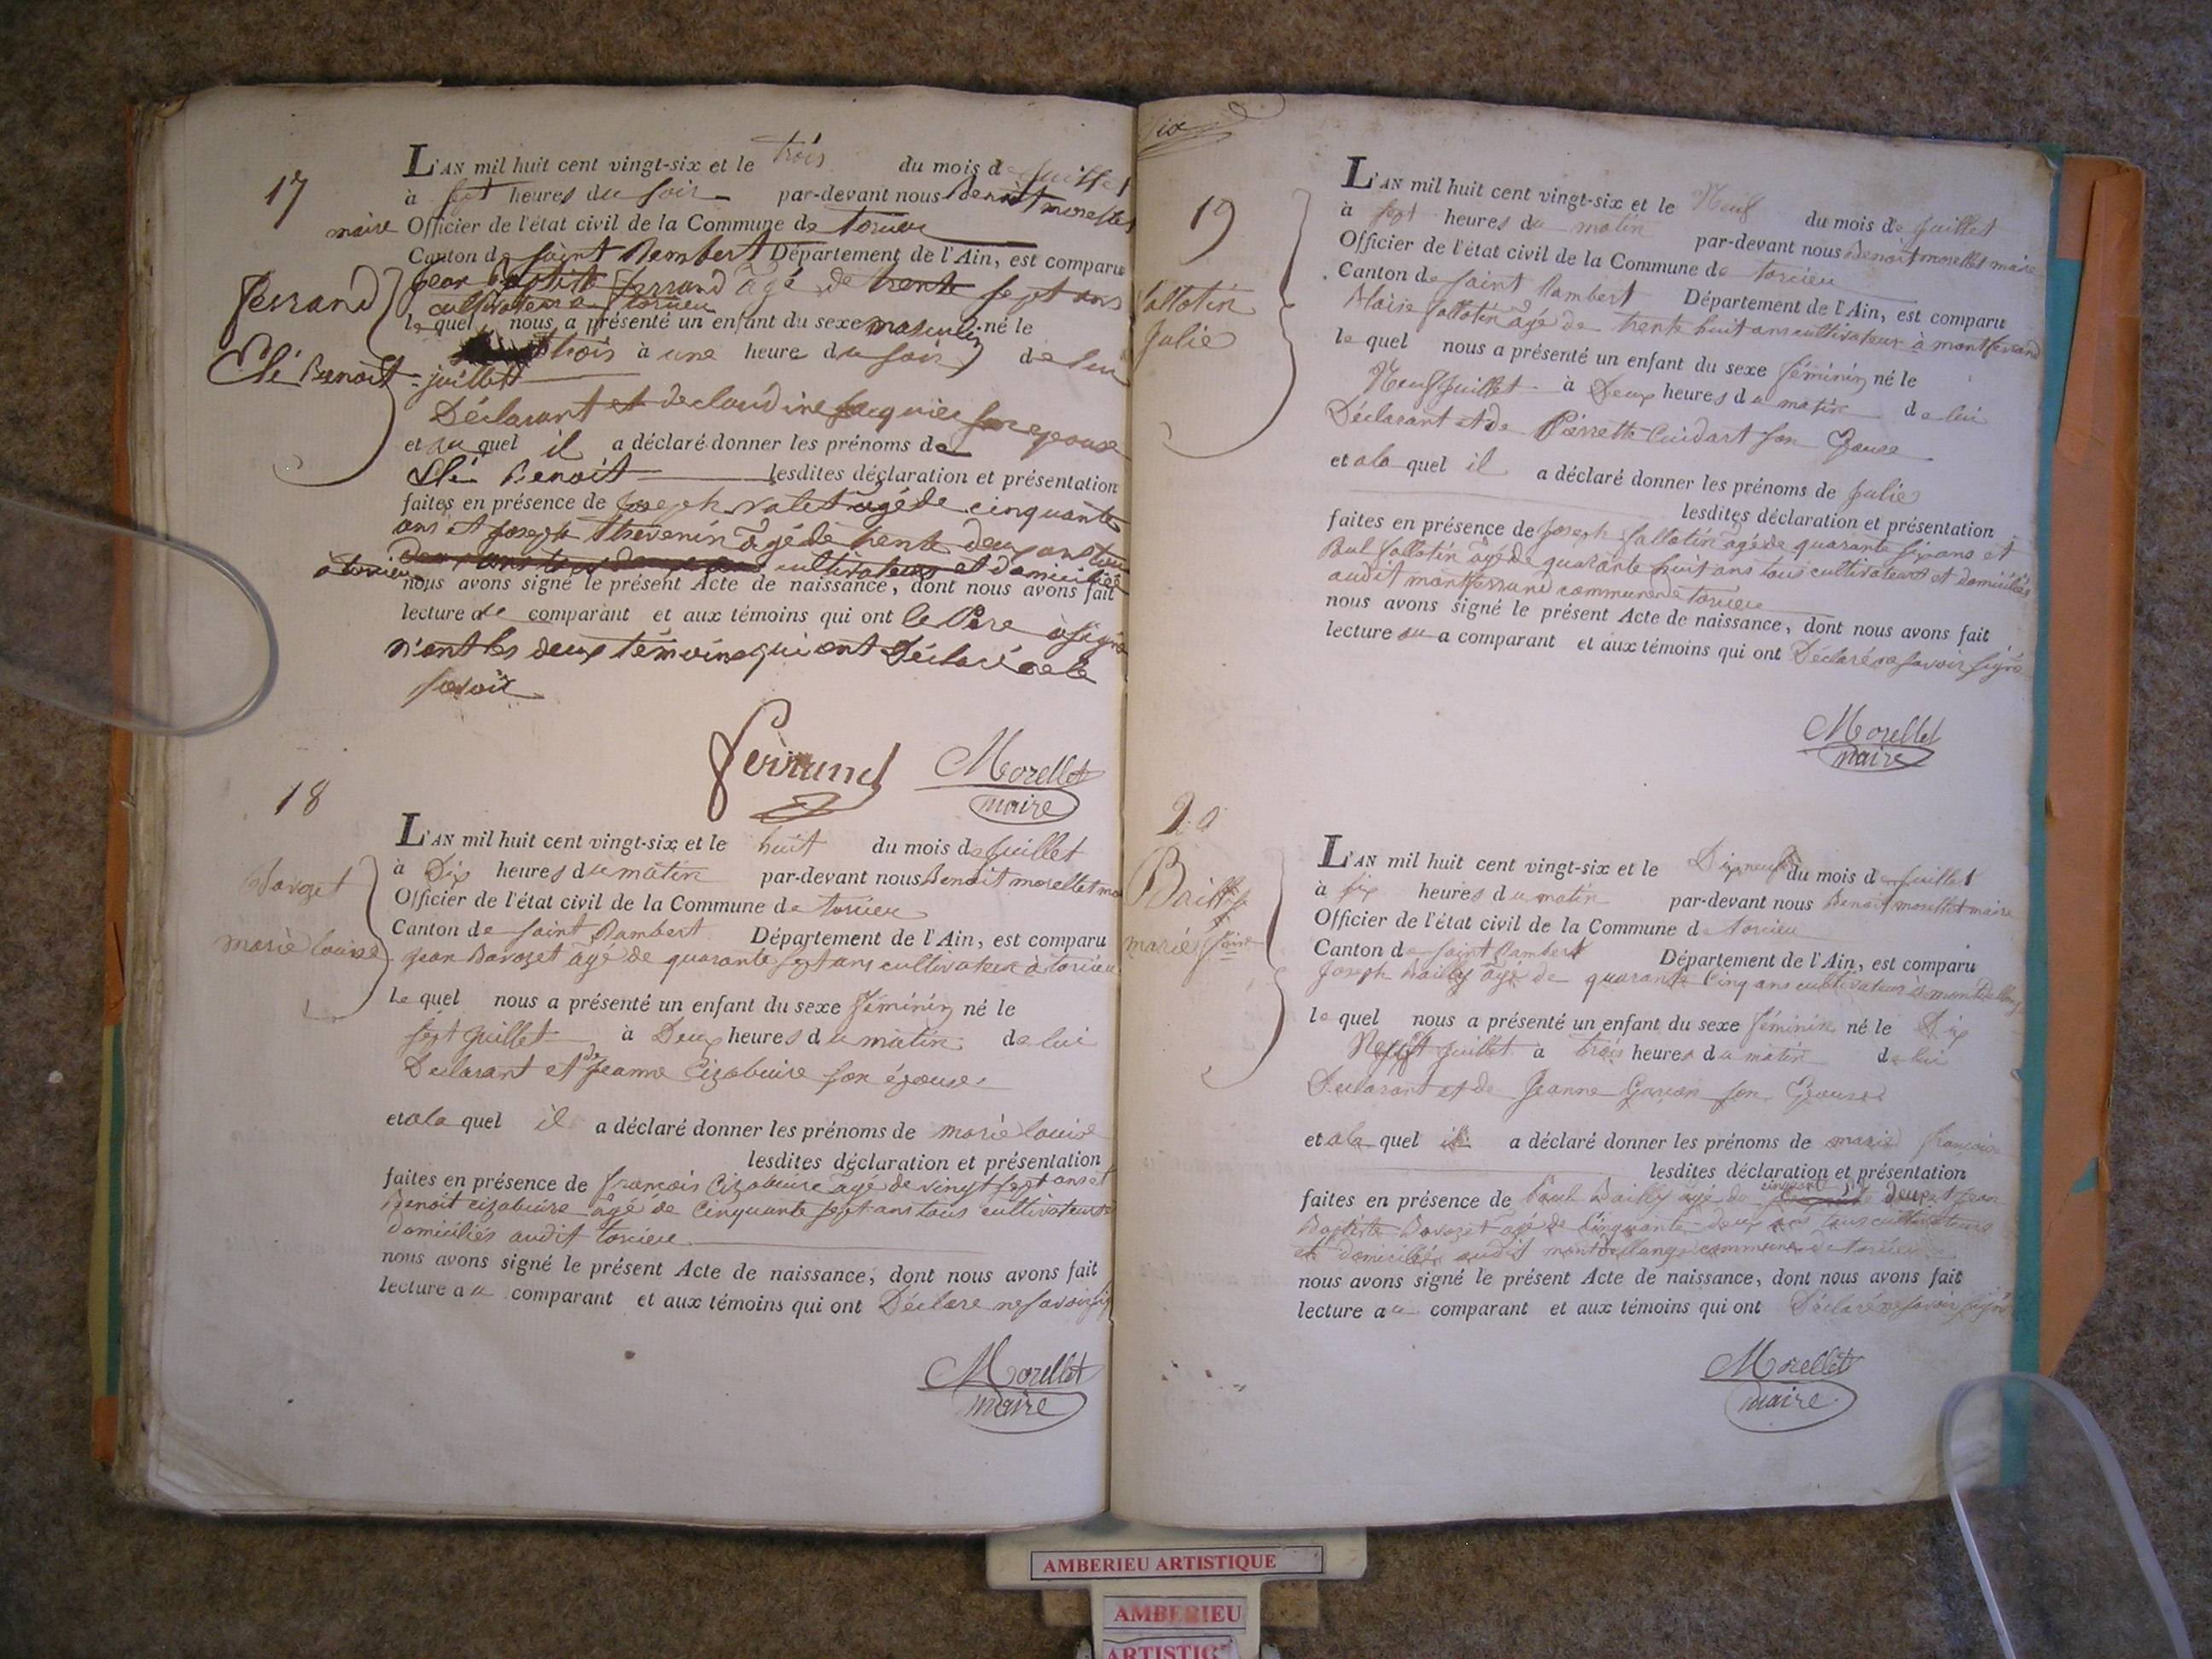 17
maire
Ferrand
Eli Benoit
L'AN mil huit cent vingt-six et le trois du mois de juillet
à sept heures du soir par-devant nous Benoit morellet
Officier de l'état civil de la Commune de torcieu
Canton de saint Rambert Département de l'Ain, est comparu
jean baptiste ferrand âgé de trente sept ans
cultivateur a torcieu
le quel nous a présenté un enfant du sexe masculin né le
trois à une heure du soir de lui
juillet
Déclarant et de claudine son epouse
et au quel il a déclaré donner les prénoms de
Eli Benoit lesdites déclaration et présentation
faites en présence de joseph valet agé de cinquante
ans et joseph thevenin âgé de trente deux ans tous
cultivateurs et domiciliés
à torcieu
nous avons signé le présent Acte de naissance, dont nous avons fait
lecture au comparant et aux témoins qui ont le Père à signé
n'ont les deux témoins qui ont Déclaré ne le
savoir
ferrand Morellet
maire
18
Davozet
marie louise
L'AN mil huit cent vingt-six et le huit du mois de juillet
à Dix heures du matin par-devant nous Benoit morellet
Officier de l'état civil de la Commune de torcieu
Canton de saint Rambert Département de l'Ain, est comparu
jean Davozet âgé de quarante sept ans cultivateur à torcieu
le quel nous a présenté un enfant du sexe féminin né le
sept juillet à Deux heures du matin de lui
Declarant et de jeanne Cizabuire son épouse
et ala quel il a déclaré donner les prénoms de marie louise
lesdites déclaration et présentation
faites en présence de françois Cizabuire âgé de vingt sept ans et
Benoit cizabuire âgé de Cinquante sept ans tous cultivateurs
domiciliés audit torcieu
nous avons signé le présent Acte de naissance, dont nous avons fait
lecture au comparant et aux témoins qui ont Déclare ne savoir
Morellet
maire
Dix
19
fallotin
julie
L'AN mil huit cent vingt-six et le Neuf du mois de juillet
à sept heures du matin par-devant nous Benoit morellet maire
Officier de l'état civil de la Commune de torcieu
Canton de saint Rambert Département de l'Ain, est comparu
Blaise fallotin âgé de trente huit ans cultivateur à montferrand
le quel nous a présenté un enfant du sexe féminin né le
Neuf juillet à Deux heures du matin de lui
Déclarant et de Pierrette Cuidart son Epouse
et ala quel il a déclaré donner les prénoms de julie
lesdites déclaration et présentation
faites en présence de joseph fallotin agé de quarante six ans et
Paul fallotin âgé de quarante huit ans tous cultivateurs et domiciliés
audit montferrand commune de torcieu
nous avons signé le présent Acte de naissance, dont nous avons fait
lecture au comparant et aux témoins qui ont Déclaré ne savoir signé
Morellet
maire
20
Bailly
marie
L'AN mil huit cent vingt-six et le Dix neuf du mois de juillet
à six heures du matin par-devant nous Benoit morellet maire
Officier de l'état civil de la Commune de torcieu
Canton de saint Rambert Département de l'Ain, est comparu
joseph bailly âgé de quarante Cinq ans cultivateur à
le quel nous a présenté un enfant du sexe féminin né le Dix
Neuf juillet à trois heures du matin de lui
Declarant et de jeanne son Epouse
et ala quel il a déclaré donner les prénoms de marie françoise
lesdites déclaration et présentation
faites en présence de Paul Bailly âgé de cinquante deux et jean
Baptiste Davozet agé de Cinquante deux ans tous cultivateurs
et domiciliés audit commune de torcieu
nous avons signé le présent Acte de naissance, dont nous avons fait
lecture au comparant et aux témoins qui ont Déclaré ne savoir signé
Morellet
maire
AMBERIEU ARTISTIQUE
AMBERIEU